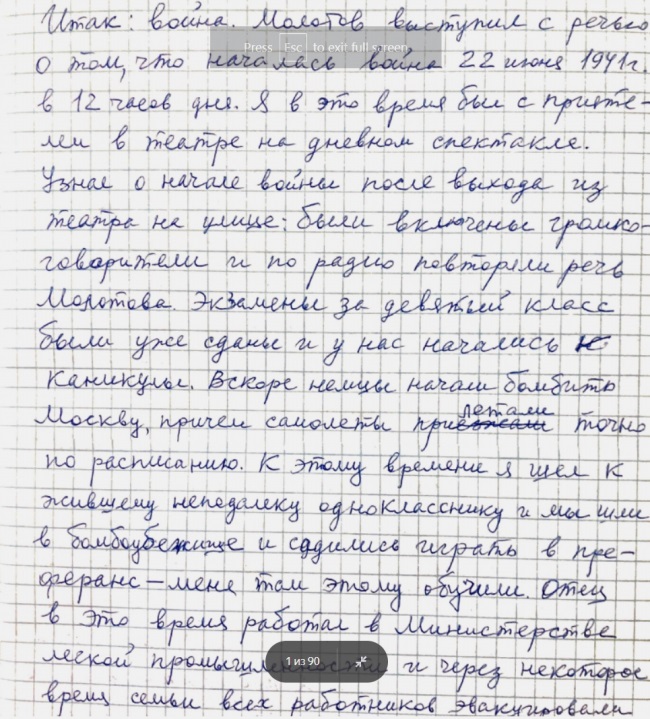 Итак: война. Молотов выступил с речью
Press Esc to exit full screen
о том, что началась война 22 июня 1941г.
в 12 часов дня. Я в это время был с прияте-
лем в театре на дневном спектакле.
Узнал о начале войны после выхода из
театра на улице: были включены громко-
говорители и по радио повторяли речь
Молотова. Экзамены за девятый класс
были уже сданы и у нас начались
каникулы. Вскоре немцы начали бомбить
Москву, причем самолеты прилетали точно
по расписанию. К этому времени я шел к
жившему неподалеку однокласснику и мы шли
в бомбоубежище и садились играть в пре-
феранс – меня там этому обучили. Отец
в это время работал в Министерстве
1 из 90
легкой промышленности и через некоторое
время семьи всех работников эвакуировали